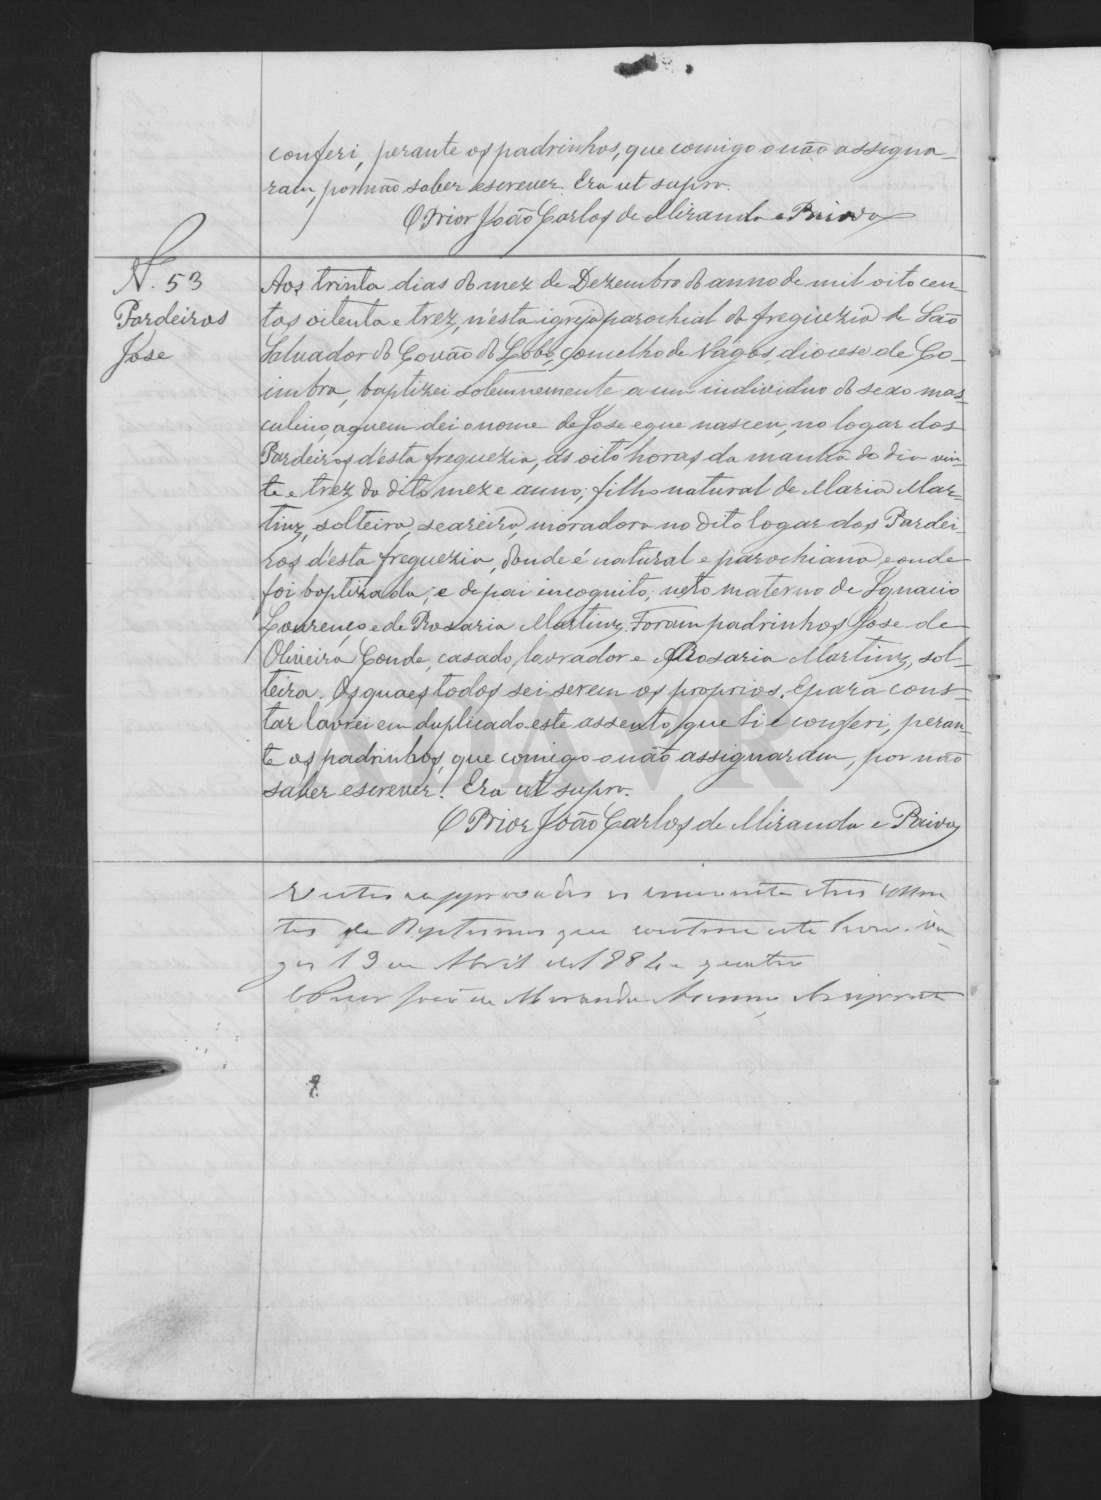 conferi, perante os padrinhos, que comigo o não assigna-
ram, por não saber escrever. Era ut supra.
O Prior João Carlos de Miranda e Paiva
N. 53
Pardeiros
José
Aos trinta dias do mez de Dezembro do anno de mil oito cen-
tos oitenta e trez, n'esta igreja parochial da freguezia de São
Salvador do Covão do Lobo, concelho de Vagos, diocese de Co-
imbra, baptizei solemnemente a um individuo do sexo mas-
culino, a quem dei o nome de José e que nasceu, no logar dos
Pardeiros d'esta freguezia, ás oito horas da manhã do dia vin-
te e trez do dito mez e anno; filho natural de Maria Mar-
tins, solteira, seareira, moradora no dito logar dos Pardei-
ros d'esta freguezia, donde é natural e parochiana, e onde
foi baptizada; e de pai incognito; neto materno de Ignacio
Lourenço e de Rosaria Martins. Foram padrinhos José de
Oliveira Conde, casado, lavrador e Rosaria Martins, sol-
teira. Os quaes todos sei serem os proprios. E para cons-
tar lavrei em duplicado este assento, que li e conferi, peran-
te os padrinhos, que comigo o não assignaram, por não
saber escrever. Era ut supra.
O Prior João Carlos de Miranda e Paiva
Vistos e approvados os cincoenta e tres assen
tos de Baptismos que contem este livro. Va-
gos 19 de Abril de 1884 e quatro
O Prior João de Miranda